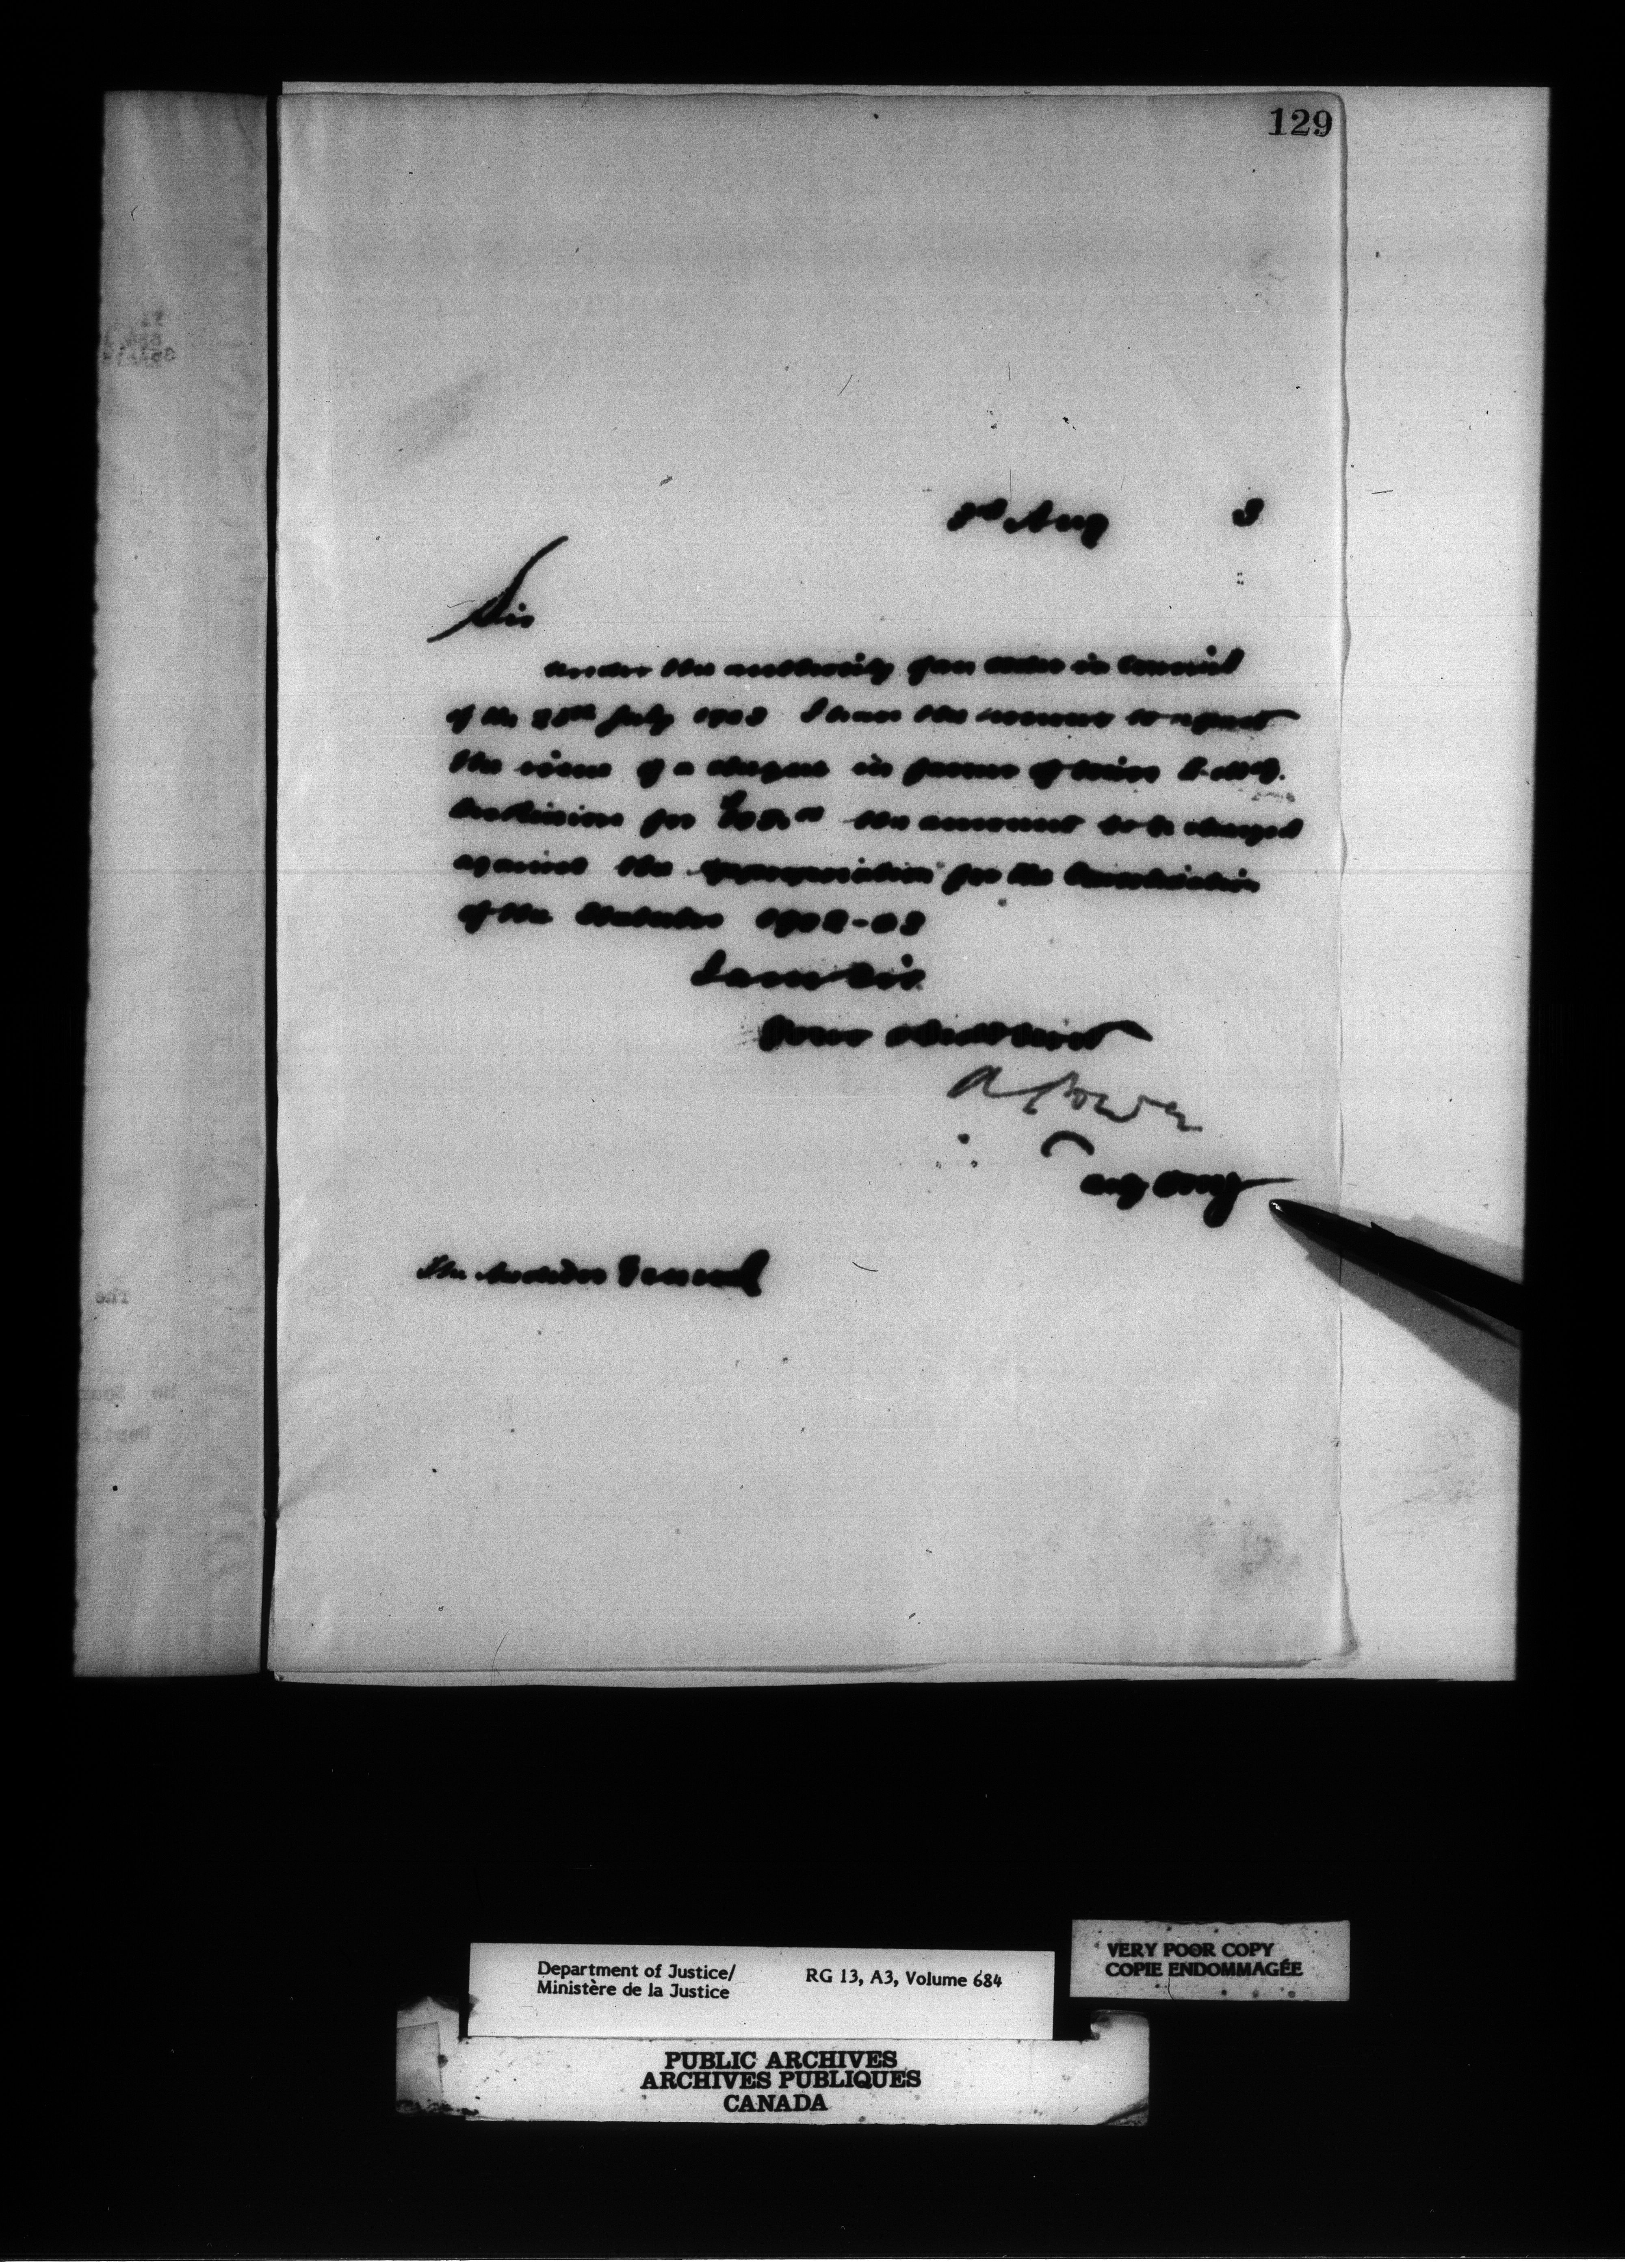 129
3rd Aug 3
Sir
Under the authority of an Order in Council
of the 28th July 1903 I have the honour to request
the issue of a cheque in favour of Miss
for the amount to be charged
against the appropriation for the Consolidation
of the Statutes 1902-03
I am Sir
Your obedt servt
A Power
Actg
The Auditor General
Department of Justice/
Ministère de la Justice
RG 13, A3, Volume 684
VERY POOR COPY
COPIE ENDOMMAGÉE
PUBLIC ARCHIVES
ARCHIVES PUBLIQUES
CANADA